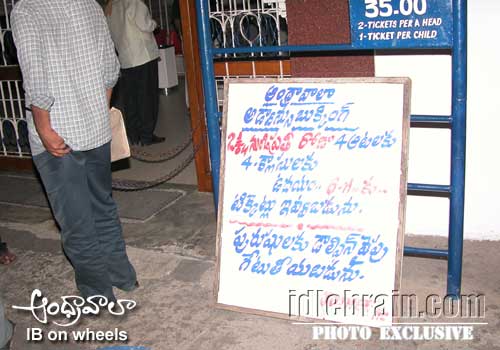 35.00
2-TICKETS PER A HEAD
1-TICKET PER CHILD
ఆంధ్రావాలా
అడ్వాన్సు బుక్కింగ్
రోజూ 4 ఆటలకు
4-క్లాసులకు
ఉదయం..
టిక్కెట్లు ఇవ్వబడును.
పురుషులకు డాల్ఫిన్ వైపు
గేటు తీయబడును.
ఆంధ్రావాలా
IB on wheels
idlebrain.com
PHOTO EXCLUSIVE